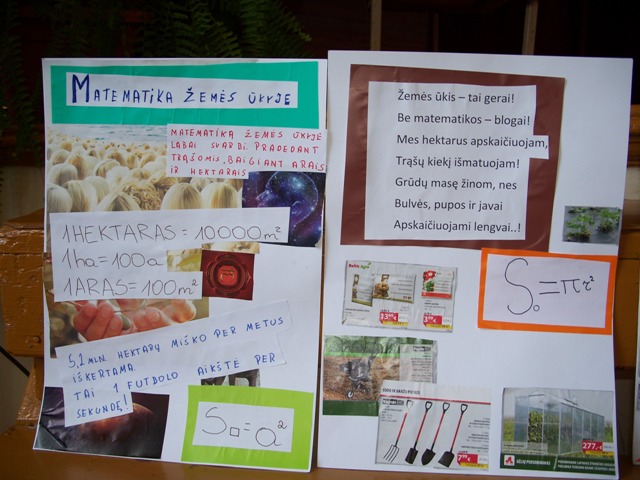 MATEMATIKA ŽEMĖS ŪKYJE
MATEMATIKA ŽEMĖS ŪKYJE
LABAI SVARBI. PRADEDANT
TRĄŠOMIS, BAIGIANT ARAIS
IR HEKTARAIS
1HEKTARAS = 10000m²
1ha = 100a
1ARAS = 100m²
5,2 MLN. HEKTARŲ MIŠKO PER METUS
IŠKERTAMA.
TAI 1 FUTBOLO AIKŠTĖ PER
SEKUNDĘ!
S□ = a²
Žemės ūkis – tai gerai!
Be matematikos – blogai!
Mes hektarus apskaičiuojam,
Trąšų kiekį išmatuojam!
Grūdų masę žinom, nes
Bulvės, pupos ir javai
Apskaičiuojami lengvai..!
S○ = πr²
Baltic Agro
33
3
SODO IR DARŽO PREKĖS
7
277.-